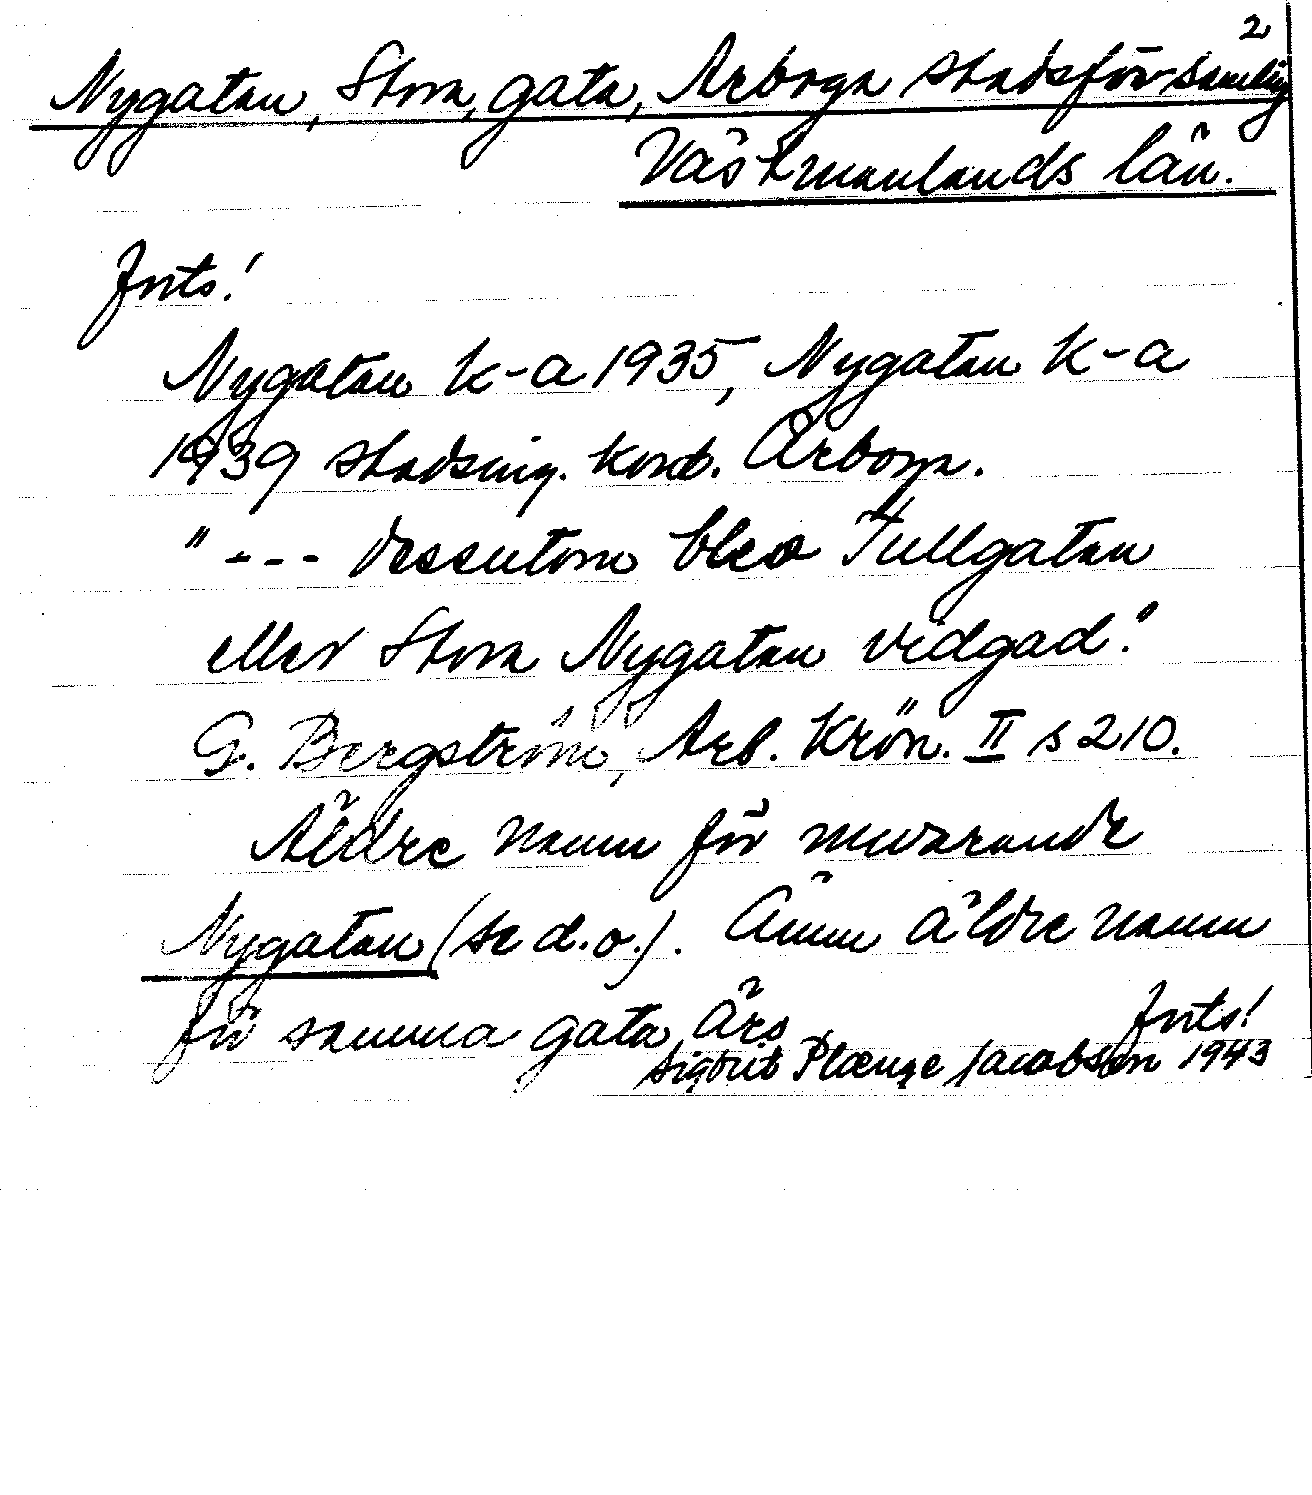 2
Nygatan, Stora, gata, Arboga stadsförsamling
Västmanlands län.
forts!
Nygatan k-a 1935, Nygatan k-a
1939 stadsing. kont. Arboga.
"--- dessutom blev Tullgatan
eller Stora Nygatan vidgad."
G. Bergström, Arb. Krön. II s 210.
Äldre namn för nuvarande
Nygatan (se d.o.). Ännu äldre namn
för samma gata äro
forts!
Sigbrit Plænge Jacobson 1943